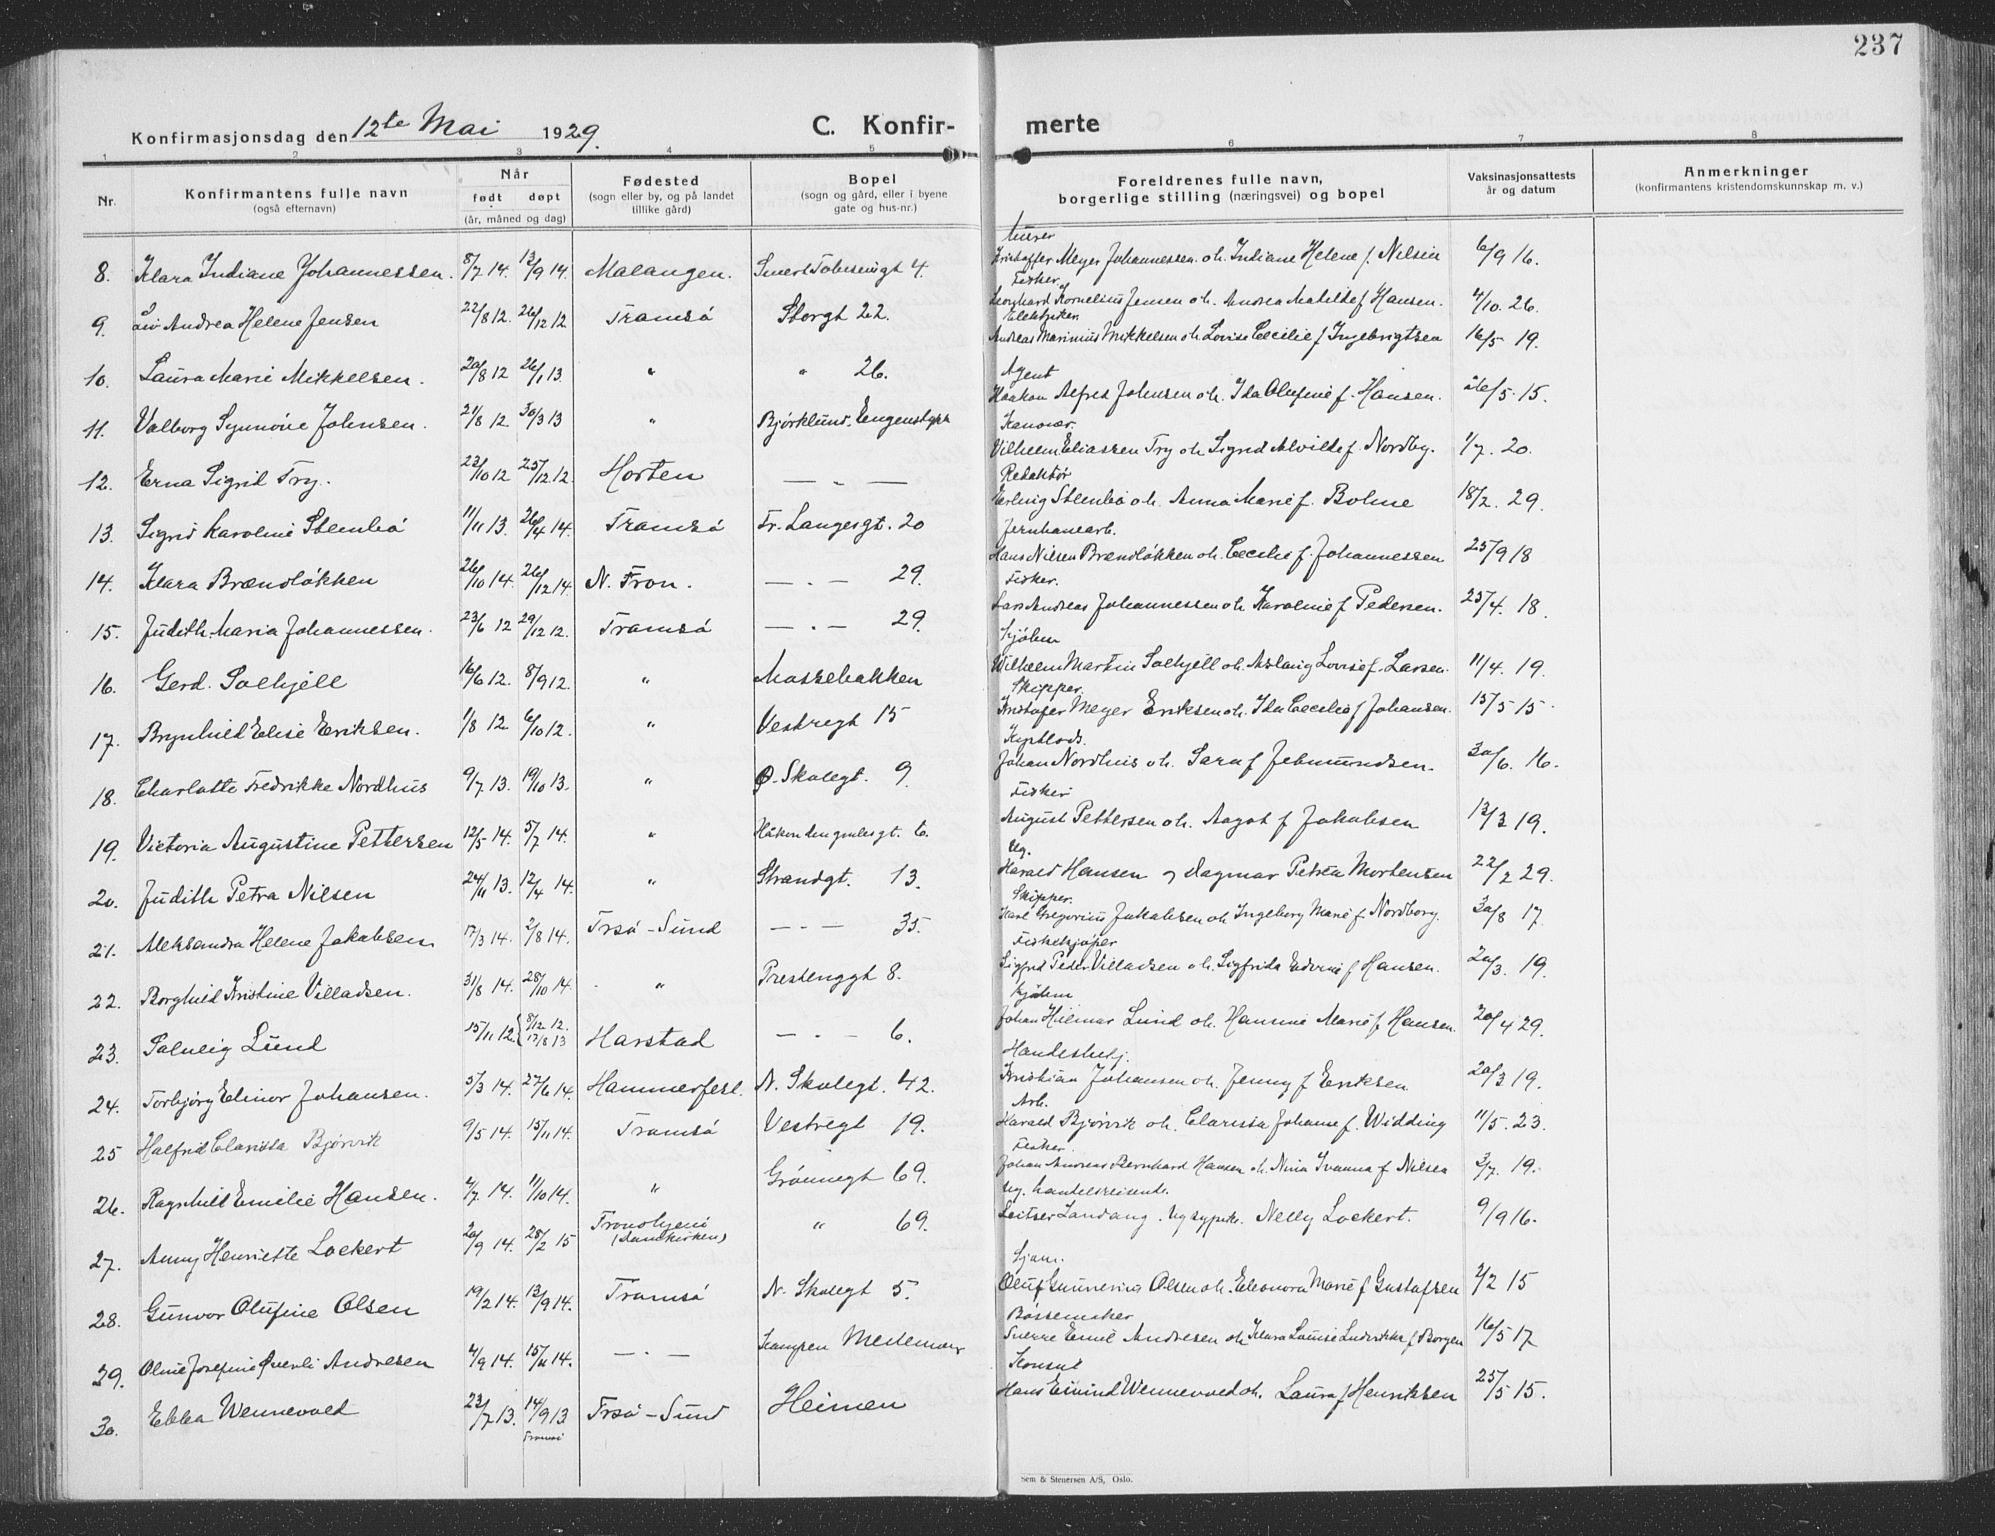 237
Konfirmasjonsdag den 12te Mai 1929.
C. Konfir-
merte
1 2 3 4 5 6 7 8
Nr.
Konfirmantens fulle navn
(også efternavn)
Når
født døpt
(år, måned og dag)
Fødested
(sogn eller by, og på landet
tillike gård)
Bopel
(sogn og gård, eller i byene
gate og hus-nr.)
Foreldrenes fulle navn,
borgerlige stilling (næringsvei) og bopel
Vaksinasjonsattests
år og datum
Anmerkninger
(konfirmantens kristendomskunnskap m. v.)
8. Klara Indiane Johannessen. 8/7 14. 13/9 14. Malangen. 4. Murer Kristoffer Meyer Johannessen o.h. Indiane Helene f. Nilsen 6/9 16.
9. Liv Andrea Helene Jensen 22/8 12. 26/12 12 Tromsø Storgt 22. Fisker Kornelius Jensen o.h. Andrea Matilde f Hansen. 4/10. 26.
10. Laura Marie Mikkelsen. 20/8 12 26/1 13. " " 26. Elektriker. Andreas Marinius Mikkelsen o.h. Lovise Cecilie f Ingebrigtsen 16/5 19.
11. Valborg Synnøve Johnsen. 21/8 12 30/3 13 " Bjørklund. Agent Haakon Alfred Johnsen o.h. Ida Olufine f. Hansen. 26/5. 15.
12. Erna Sigrid Try. 23/10 12 25/12 12. Horten — " — Vilhelm Eliassen Try o.h. Sigrid Alvilde f. Nordby. 1/7. 20.
13. Sigrid Karoline Stenbø 11/11 13. 26/4 14. Tromsø Fr. Langesgt. 20 Redaktør Erling Stenbø o.h. Anna Marie f. Bolme 18/2. 29.
14. Klara Brændløkken 26/10 14. 26/12 14. N. Fron. — " — 29. Jernbanearb. Hans Nilsen Brændløkken o.h. Cecilie f. Johannessen 25/9 18
15. Judith Maria Johannessen. 23/6 12 29/12 12. Tromsø — " — 29. Fisker. Lars Andreas Johannessen o.h. Karoline f Pedersen. 25/4. 18.
16. Gerd. Solhjell 16/6 12. 8/9 12. " Mossebakken Sjøm Wilhelm Martin Solhjell o.h. Aslaug Lovise f. Larsen. 11/4. 19.
17. Brynhild Elise Eriksen. 1/8 12 6/10 12. " Vestregt 15 Skipper. Kristofer Meyer Eriksen o.h. Ida Cecilie f Johansen. 15/5 15.
18. Charlotte Fredrikke Nordhus 9/7 13. 19/10 13. " Ø. Skolegt. 9. Kystlods. Johan Nordhus o.h. Sara f Jebmundsen. 30/6. 16.
19. Victoria Augustine Pettersen 12/5 14. 5/7 14. " Håkon den gamlesgt. 6. Fisker August Pettersen o.h. Aagot f Jakobsen 13/3 19.
20. Judith Petra Nilsen 24/11 13. 12/4 14. " Strandgt. 13. Ug. Harald Hansen og Dagmar Petrea Mortensen 22/2 29.
21. Aleksandra Helene Jakobsen 17/3 14. 2/8 14. Trsø-Sund — " — 35. Skipper. Karl Gregorius Jakobsen o.h. Ingeborg Marie f. Nordborg. 30/8 17.
22. Borghild Kristine Villadsen. 31/8 14. 28/10 14. " Prestenggt 8. Fiskekjøper Sigfrid Peder Villadsen o.h. Sigfrida f Hansen. 20/3. 19.
23. Solveig Lund 15/11 12. {8/12 12. 17/8 13 Harstad — " — 6. Sjøm Johan Hilmar Lund o.h. Hannine Marie f. Hansen. 20/4 29.
24. Torbjørg Elinor Johansen. 5/3 14. 27/6 14. Hammerfest. N. Skolegt. 42. Handelsbetj. Kristian Johansen o.h. Jenny f Eriksen 20/3 19.
25 Halfrid Clarissa Bjørvik 9/5 14. 15/11 14. Tromsø Vestregt 19. Arb. Harald Bjørvik o.h. Clarissa Johanne f. Widding 11/5. 23.
26. Ragnhild Emilie Hansen. 2/7 14. 11/10 14. " Grønnegt 69. Fisker. Johan Andreas Bernhard Hansen o.h. Nina Ivanna f Nilsen 3/7. 19.
27. Anny Henriette Lockert 20/9 14. 28/2 15 Trondhjem (Domkirken) " 69. Ug. handelsreisende. Nelly Lockert. 9/9 16.
28. Gunvor Olufine Olsen 19/2 14. 13/9 14. Tromsø N. Skolegt 5. Sjøm. Oluf Olsen o.h. Eleonora Marie f Gustafsen 2/2 15
29. Oline Josefine Øverli Andresen 4/9 14. 15/11 14. — " — Bøssemaker Sverre Emil Andresen o.h. Klara Louise Ludvikke f Borgen 16/5 17
30. Ebba Wennevold 23/7 13. 14/9 13 Tromsø Trsø-Sund Heimen Konsul Hans Eivind Wennevold o.h. Laura f Henriksen 25/5 15.
Sem & Stenersen A/S, Oslo.